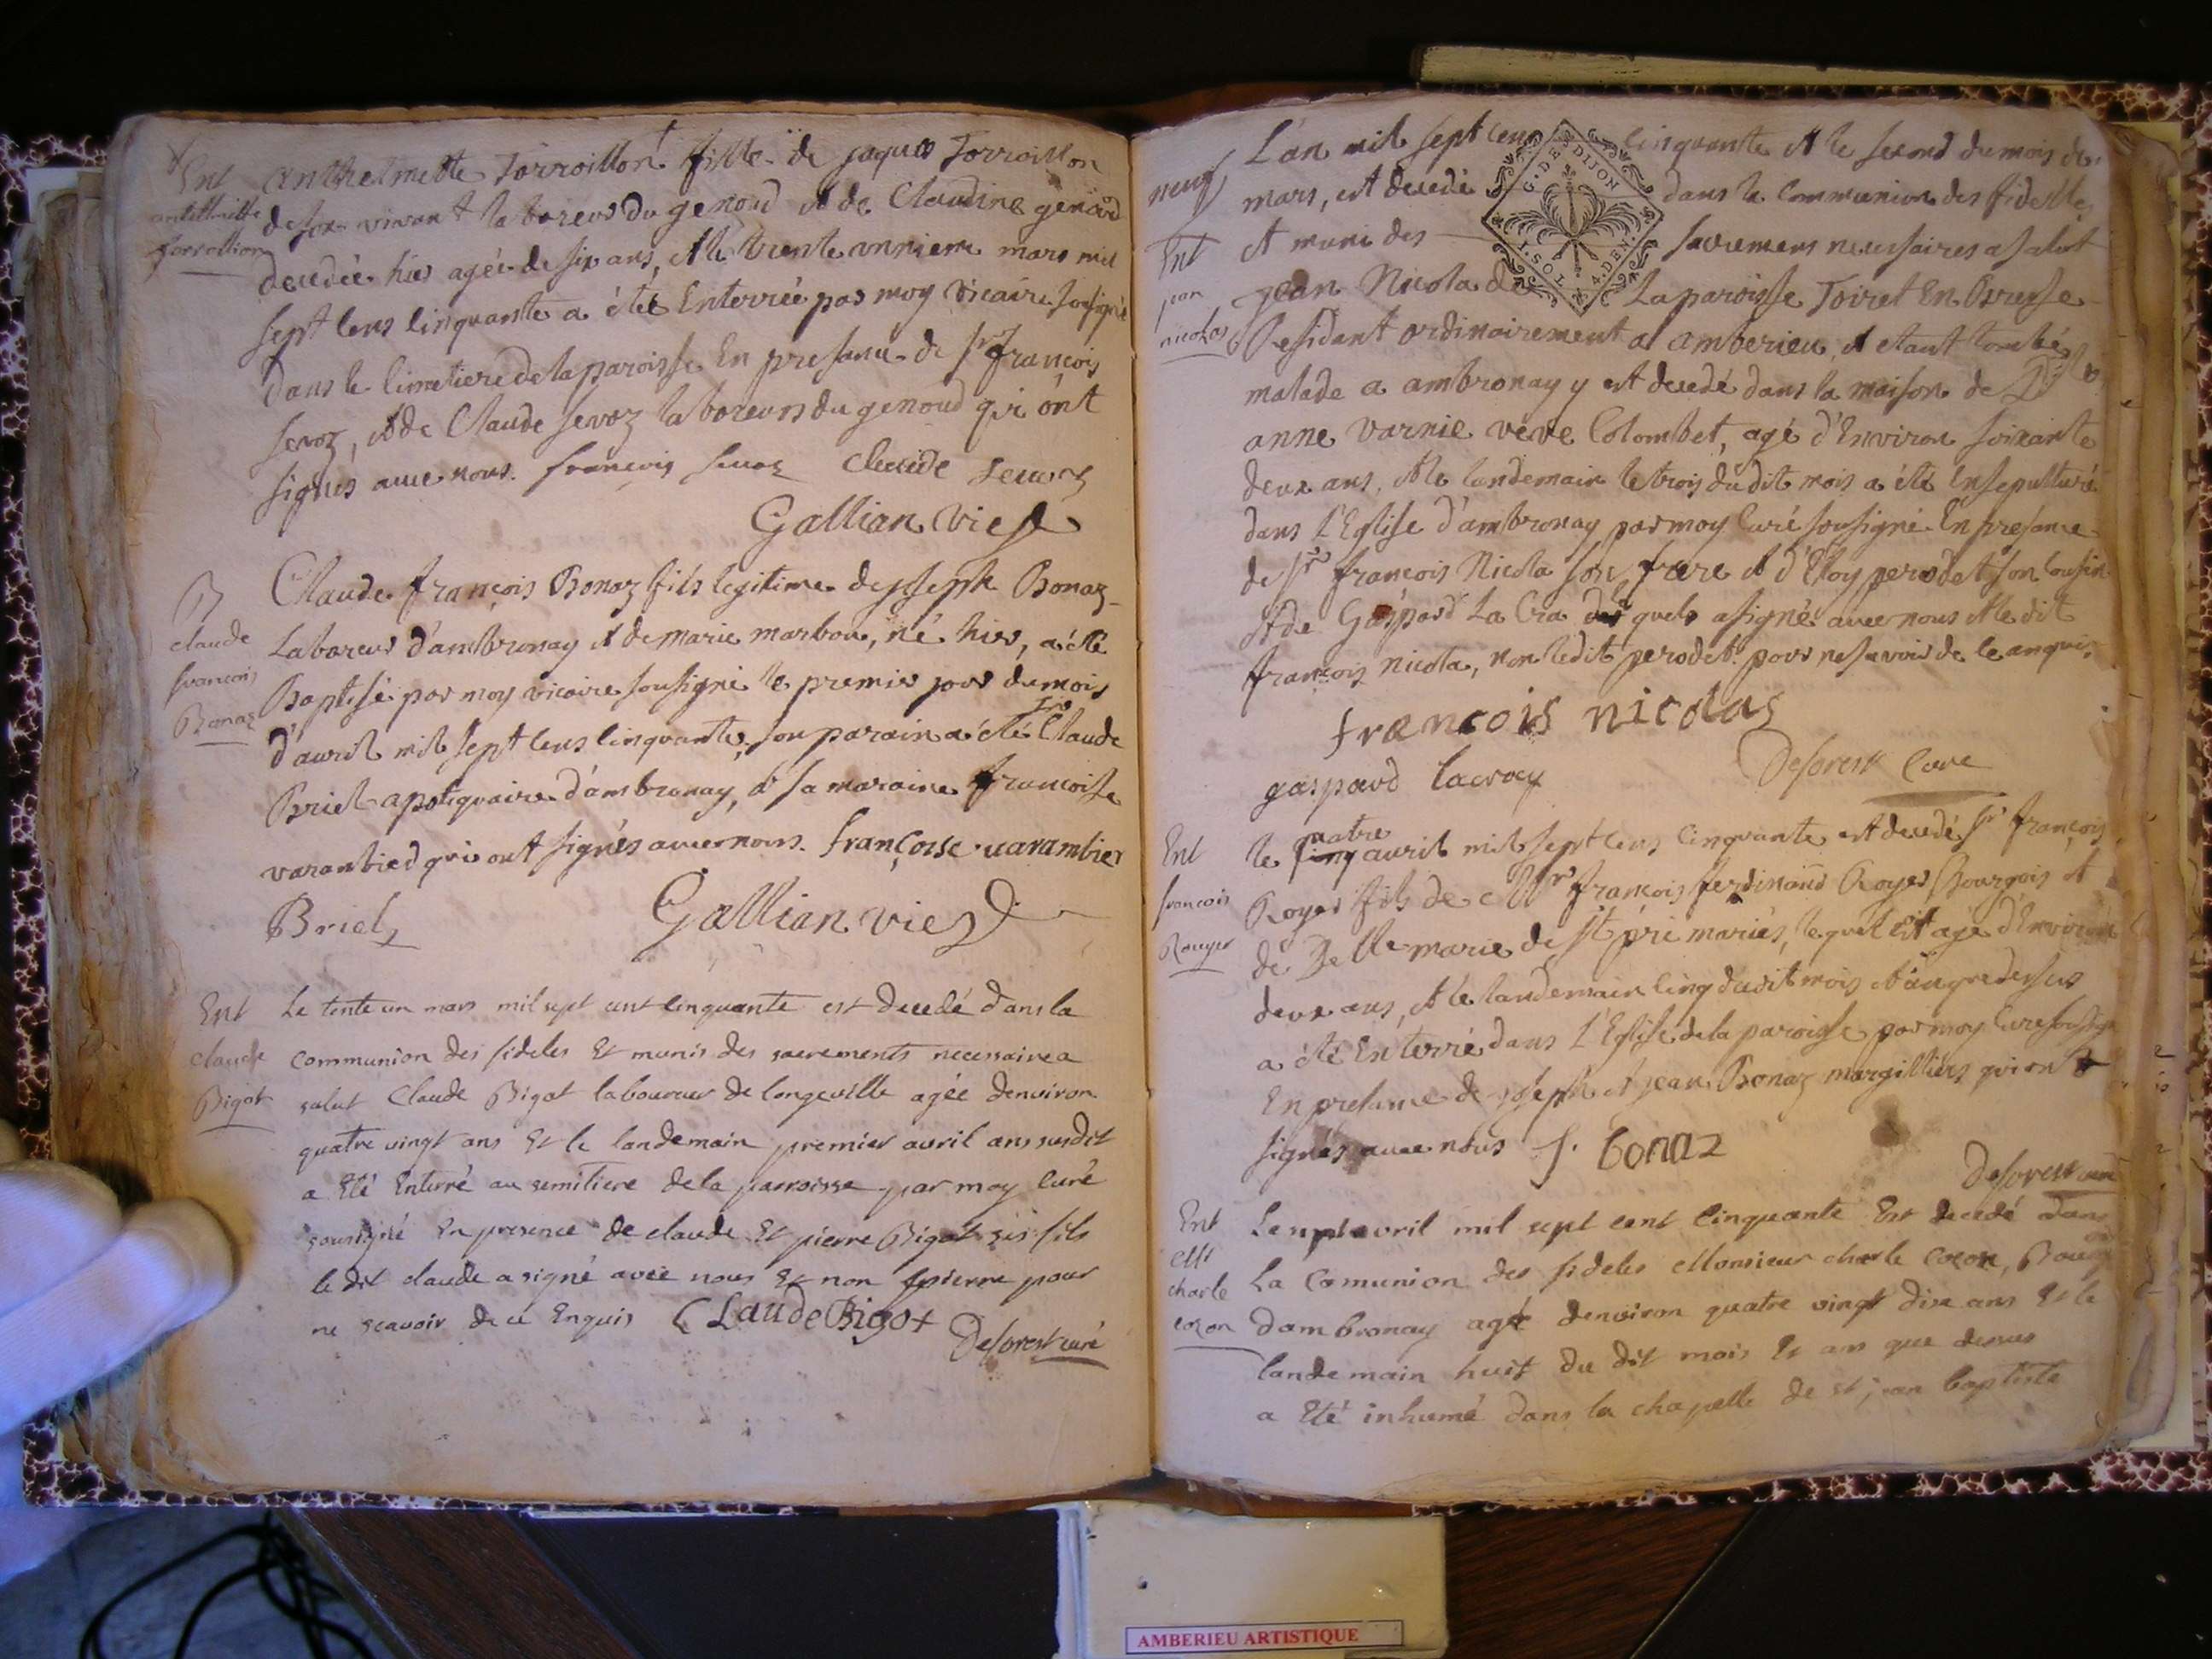 Ent
anthelmette
Torroillion
anthelmette Torroillon fille de jaques Torroillon
de son vivant laboreur du genoud et de Claudine genoud
decedée hier agée de six ans, et le trente unnieme mars mil
sept cens cinquante a étée Enterrée par moy vicaire sousigné
dans le cimetiere de la paroisse En presance de sr françois
sevoz, et de Claude sevoz laboreurs du genoud qui ont
signés avec nous. françois sevoz Claude sevoz
Gallian vice
B
claude
francois
Bonaz
Claude françois Bonaz fils legitime de joseph Bonaz
Laboreur d'ambronay et de marie marbou, né hier, a été
Baptisé par moy vicaire sousigné le premier jour du mois
d'avril mil sept cens cinquante, son parain a été sr Claude
Briel apotiquaire d'ambronay, et sa maraine francoise
varambied qui ont signés avec nous. françoise varambier
Briel Gallian vice
Ent
claude
Bigot
Le tente un mars mil sept cent cinquante est decedé dans la
communion des fideles Et munis des sacrements necessaire a
salut Claude Bigot laboureur de longeville agée denviron
quatre vingt ans Et le landemain premier avril ans susdit
a Eté Enterré au semitiere de la parroisse par moy curé
sousigné En presence de claude Et pierre Bigot ses fils
le dit claude a signé avec nous Et non pierre pour
ne scavoir de ce Enquis CLaude Bigot
Deforest curé
neuf
L'an mil sept cens cinquante et le second du mois de
G. DE DIJON
1. SOL 4. DEN.
mars, est decedé dans la Communion des fidelles
Ent
jean
nicolas
et muni des sacremens necessaires a salut
jean Nicola de La paroisse Toiret En Bresse
Residant ordinairement a amberieu, et etant tombé
malade a ambronay y est decedé dans la maison de Dlle
anne varnie véve Colombet, agé d'Environ soixante
deux ans, et le landemain le trois du dit mois a été Ensepulturé
dans l'Eglise d'ambronay par moy Curé sousigné En presance
de srs francois Nicola son frere et d'Eloy perodet son cousin
et de Gaspard La Cra des quels a signé avec nous et le dit
francois nicola, non ledit perodet pour ne savoir de ce anquis
francois nicolas
gaspard lacroy Deforest Curé
Ent
francois
Rouyer
le quatre avril mil sept cens cinquante est decedé sr françois
Royer fils de Mr francois ferdinand Royer Bourgois et
de Delle marie de st pri mariés, le quel Est agé d'Environ
deux ans, et le landemain cinq dudit mois et an que dessus
a été Enterré dans L'Eglise de la paroisse par moy Curé sousigné
En presance de joseph et jean Bonaz margilliers qui ont
signés avec nous J. bonaz
Deforest curé
Ent
Mr
charle
cozon
Le sept avril mil sept cent cinquante Est decedé dans
La Comunion des fideles Monsieur charle cozon, Bourg
Dambronay agé denviron quatre vingt dix ans Et le
landemain huit du dit mois Et ans que dessus
a Eté inhumé dans la chapelle de st jean baptiste
AMBERIEU ARTISTIQUE